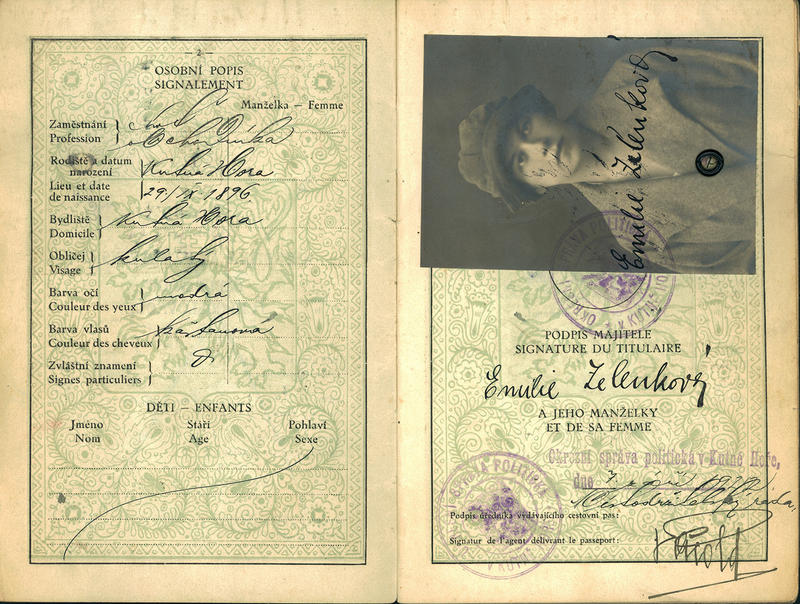 - 2 -
OSOBNÍ POPIS
SIGNALEMENT
Manželka — Femme
Zaměstnání
Profession
Rodiště a datum
narození
Kutná Hora
Lieu et date
de naissance
29/IX 1896
Bydliště
Domicile
Kutná Hora
Obličej
Visage
kulatý
Barva očí
Couleur des yeux
modrá
Barva vlasů
Couleur des cheveux
kaštanová
Zvláštní znamení
Signes particuliers
DĚTI – ENFANTS
Jméno Stáří Pohlaví
Nom Age Sexe
Emilie Zelenková
PODPIS MAJITELE
SIGNATURE DU TITULAIRE
Emilie Zelenková
A JEHO MANŽELKY
ET DE SA FEMME
Okresní správa politická v Kutné Hoře,
dne 7. září
Podpis úředníka vydávajícího cestovní pas:
Signatur de l'agent délivrant le passeport: